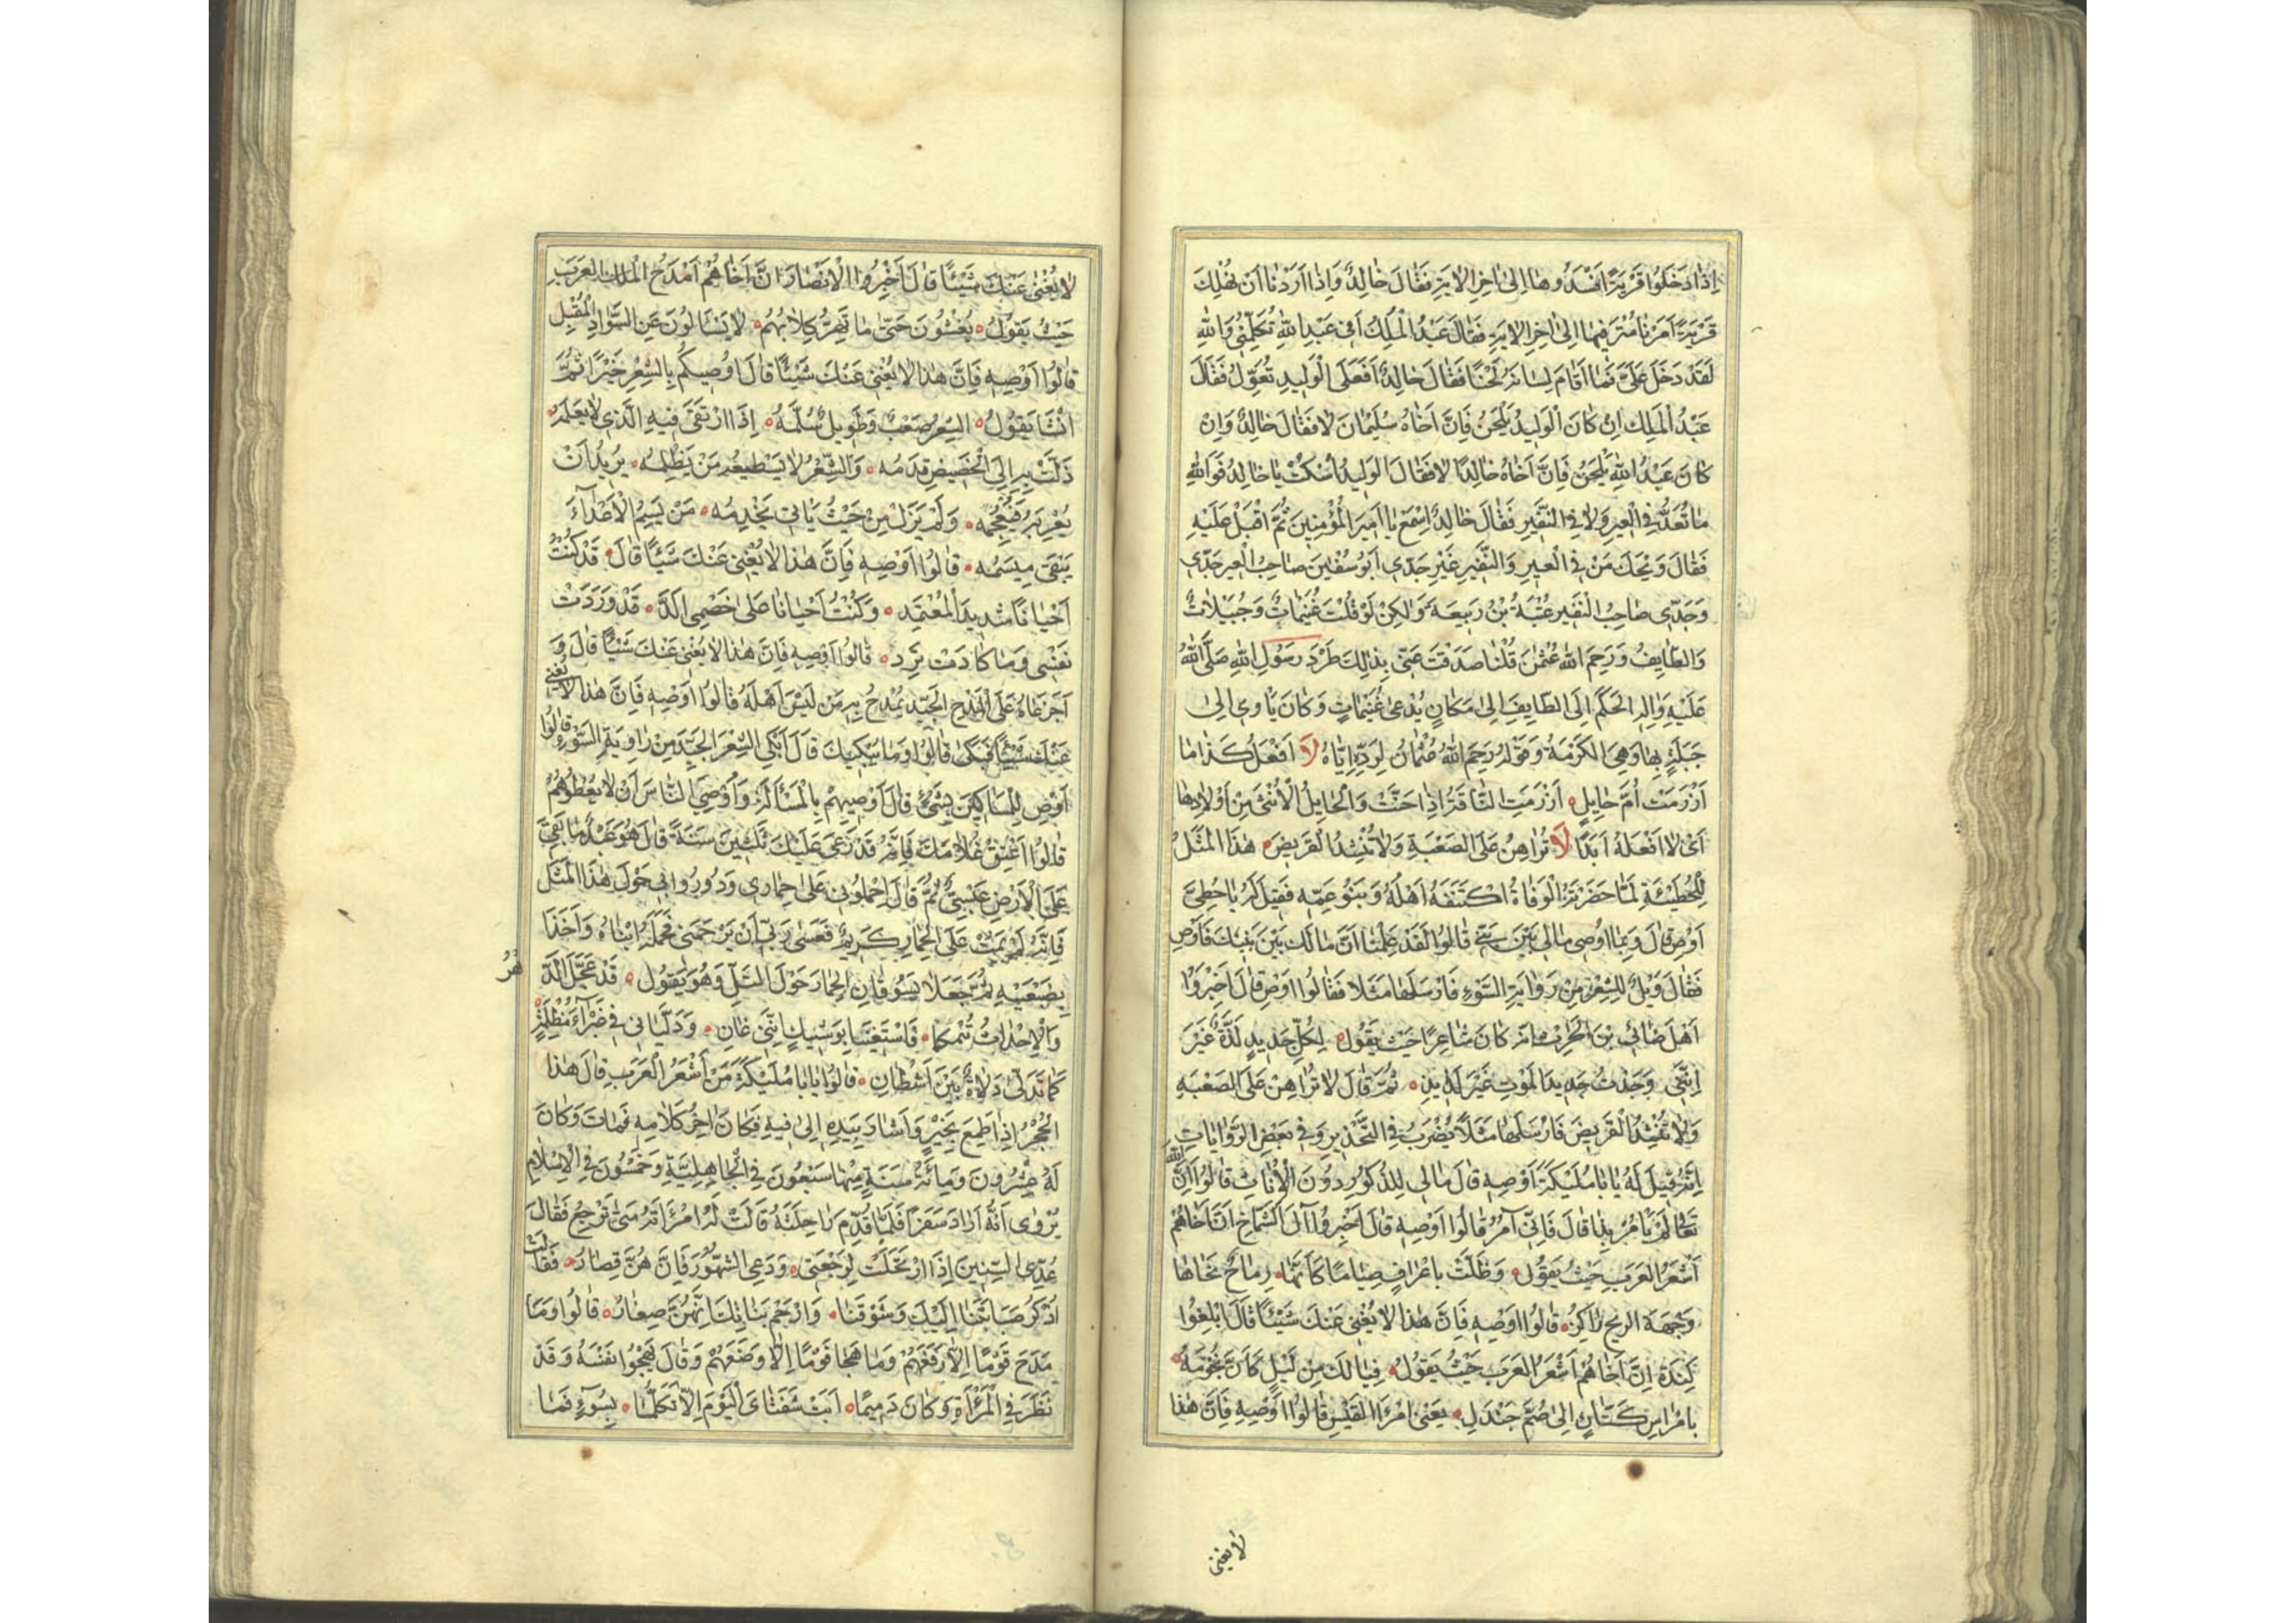 اِذَا دَخَلُوا قَرْيَةً اَفْسَدُوهَا اِلىٰ اٰخِرِ الْاٰيَةِ فَقَالَ خَالِدٌ وَاِذَا اَرَدْنَا اَنْ نُهْلِكَ
قَرْيَةً اَمَرْنَا مُتْرَفِيهَا اِلىٰ اٰخِرِ الْاٰيَةِ فَقَالَ عَبْدُ الْمَلِكِ اَفِى عَبْدِ اللهِ تُكَلِّمُنِى وَاللهِ
لَقَدْ دَخَلَ عَلَىَّ فَمَا اَقَامَ لِسَانَهُ لَحْنًا فَقَالَ خَالِدٌ اَفَعَلَى الْوَلِيدِ تُعَوِّلُ فَقَالَ
عَبْدُ الْمَلِكِ اِنْ كَانَ الْوَلِيدُ يَلْحَنُ فَاِنَّ اَخَاهُ سُلَيْمَانَ لَا فَقَالَ خَالِدٌ وَاِنْ
كَانَ عَبْدُ اللهِ يَلْحَنُ فَاِنَّ اَخَاهُ خَالِدًا لَا فَقَالَ الْوَلِيدُ اُسْكُتْ يَا خَالِدُ فَوَاللهِ
مَا تُعَدُّ فِى الْعِيرِ وَلَا فِى النَّفِيرِ فَقَالَ خَالِدٌ اِسْمَعْ يَا اَمِيرَ الْمُؤْمِنِينَ ثُمَّ اَقْبَلَ عَلَيْهِ
فَقَالَ وَيْحَكَ مَنْ فِى الْعِيرِ وَالنَّفِيرِ غَيْرِ جَدِّى اَبُو سُفْيٰنَ صَاحِبُ الْعِيرِ جَدِّى
وَجَدِّى صَاحِبُ النَّفِيرِ عُتْبَةُ بْنُ رَبِيعَةَ وَلٰكِنْ لَوْ قُلْتَ غُنَيْمَاتٌ وَجُبَيْلَاتٌ
وَالطَّايِفُ وَرَحِمَ اللهُ عُثْمٰنَ قُلْنَا صَدَقْتَ عَنَى بِذٰلِكَ طَرْدَ رَسُولِ اللهِ صَلَّى اللهُ
عَلَيْهِ وَالِدِ الْحَكَمِ اِلَى الطَّايِفِ اِلىٰ مَكَانٍ يُدْعىٰ غُنَيْمَاتٍ وَكَانَ يَاْوِى اِلىٰ
حَبَلَةٍ بِهَا وَهِىَ الْكَرْمَةُ وَقَوْلُهُ رَحِمَ اللهُ عُثْمَانَ لِرَدِّهِ اِيَّاهُ لَا اَفْعَلُ كَذَا مَا
اَرْزَمَتْ اُمُّ حَايِلٍ اَرْزَمَتِ النَّاقَةُ اِذَا حَنَّتْ وَالْحَايِلُ الْاُنْثىٰ مِنْ اَوْلَادِهَا
اَىْ لَا اَفْعَلُهُ اَبَدًا لَا تُرَاهِنْ عَلَى الصَّعْبَةِ وَلَا تُنْشِدِ الْقَرِيضَ هٰذَا الْمَثَلُ
لِلْحُطَيْئَةِ لَمَّا حَضَرَتْهُ الْوَفَاةُ اكْتَنَفَهُ اَهْلُهُ وَبَنُو عَمِّهِ فَقِيلَ لَهُ يَا حُطَىُّ
اَوْصِ قَالَ وَبِمَا اُوصِى مَالِى بَيْنَ بَنِىَّ قَالُوا لَقَدْ عَلِمْنَا اَنَّ مَالَكَ بَيْنَ بَنِيكَ فَاَوْصِ
فَقَالَ وَيْلٌ لِلشِّعْرِ مِنْ رِوَايَةِ السَّوْءِ فَاَرْسَلَهَا مَثَلًا فَقَالُوا اَوْصِ قَالَ اَخْبِرُوا
اَهْلَ ضَابِئِ بْنِ الْحٰرِثِ اَنَّهُ كَانَ شَاعِرًا حَيْثُ يَقُولُ لِكُلِّ جَدِيدٍ لَذَّةٌ غَيْرَ
اَنَّنِى وَجَدْتُ جَدِيدَ الْمَوْتِ غَيْرَ لَذِيذِ ثُمَّ قَالَ لَا تُرَاهِنْ عَلَى الصَّعْبَةِ
وَلَا تُنْشِدِ الْقَرِيضَ فَاَرْسَلَهَا مَثَلًا يُضْرَبُ فِى التَّحْذِيرِ وَفِى بَعْضِ الرِّوَايَاتِ
اِنَّهُ قِيلَ لَهُ يَا اَبَا مُلَيْكَةَ اَوْصِهِ قَالَ مَالِى لِلذُّكُورِ دُونَ الْاُنَاثِ قَالُوا اِنَّ اللهَ
تَعَالىٰ لَمْ يَاْمُرْ بِذَا قَالَ فَاِنِّى اٰمُرُ قَالُوا اَوْصِهِ قَالَ اَخْبِرُوا اٰلَ الشَّمَاخِ اَنَّ اَخَاهُمْ
اَشْعَرُ الْعَرَبِ حَيْثُ يَقُولُ وَظَلَّتْ بِاَعْرَافٍ صِيَامًا كَاَنَّهَا رِمَاحٌ نَحَاهَا
وِجْهَةَ الرِّيحِ رَاكِزُ قَالُوا اَوْصِهِ فَاِنَّ هٰذَا لَا يُغْنِى عَنْكَ شَيْئًا قَالَ اَبْلِغُوا
كِنْدَةَ اِنَّ اَخَاهُمْ اَشْعَرُ الْعَرَبِ حَيْثُ يَقُولُ فَيَا لَكَ مِنْ لَيْلٍ كَاَنَّ نُجُومَهُ
بِاَمْرَاسِ كَتَّانٍ اِلىٰ صُمِّ جَنْدَلِ يَعْنِى امْرَاَ الْقَيْسِ قَالُوا اَوْصِهِ فَاِنَّ هٰذَا
لا يغنى
لَا يُغْنِى عَنْكَ شَيْئًا قَالَ اَخْبِرُوا الْاَنْصَارَ اَنَّ اَخَاهُمْ اَمْدَحُ الْعَرَبِ
حَيْثُ يَقُولُ يُغْشَوْنَ حَتّىٰ مَا تَهِرُّ كِلَابُهُمْ لَا يَسْاَلُونَ عَنِ السَّوَادِ الْمُقْبِلِ
قَالُوا اَوْصِهِ فَاِنَّ هٰذَا لَا يُغْنِى عَنْكَ شَيْئًا قَالَ اُوصِيكُمْ بِالشِّعْرِ خَيْرًا ثُمَّ
اَنْشَا يَقُولُ الشِّعْرُ صَعْبٌ وَطَوِيلٌ سُلَّمُهُ اِذَا ارْتَقىٰ فِيهِ الَّذِى لَا يَعْلَمُهُ
زَلَّتْ بِهِ اِلَى الْحَضِيضِ قَدَمُهُ وَالشِّعْرُ لَا يَسْطِيعُهُ مَنْ يَظْلِمُهُ يُرِيدُ اَنْ
يُعْرِبَهُ فَيُعْجِمُهُ وَلَمْ يَزَلْ مِنْ حَيْثُ يَاْتِى يَخْدِمُهُ مَنْ يَسِمُ الْاَعْدَاءَ
يَبْقىٰ مِيسَمُهُ قَالُوا اَوْصِهِ فَاِنَّ هٰذَا لَا يُغْنِى عَنْكَ شَيْئًا قَالَ قَدْ كُنْتُ
اَحْيَانًا شَدِيدَ الْمُعْتَمَدِ وَكُنْتُ اَحْيَانًا عَلىٰ خَصْمِى اَلَدَّ قَدْ وَرَدَتْ
نَفْسِى وَمَا كَادَتْ تَرِدُ قَالُوا اَوْصِهِ فَاِنَّ هٰذَا لَا يُغْنِى عَنْكَ شَيْئًا قَالَ وَ
اَجَزَعَاهُ عَلَى الْمَدْحِ الْجَيِّدِ يُمْدَحُ بِهِ مَنْ لَيْسَ اَهْلَهُ قَالُوا اَوْصِهِ فَاِنَّ هٰذَا لَا يُغْنِى
عَنْكَ شَيْئًا فَبَكىٰ قَالُوا وَمَا يُبْكِيكَ قَالَ اَبْكِى الشِّعْرَ الْجَيِّدَ مِنْ رَاوِيَةِ السَّوْءِ قَالُوا
اَوْصِ لِلْمَسَاكِينَ بِشَىْءٍ قَالَ اُوصِيهِمْ بِالْمَسْاَلَةِ وَاُوصِى النَّاسَ اَنْ لَا يُعْطُوهُمْ
قَالُوا اَعْتِقْ غُلَامَكَ فَاِنَّهُ قَدْ رَعىٰ عَلَيْكَ ثَلٰثِينَ سَنَةً قَالَ هُوَ عَبْدٌ مَا بَقِىَ
عَلَى الْاَرْضِ عَبْسِىٌّ ثُمَّ قَالَ اِحْمِلُونِى عَلىٰ حِمَارِى وَدُورُوا بِى حَوْلَ هٰذَا الْمَثَل
فَاِنَّهُ لَمْ يَمُتْ عَلَى الْحِمَارِ كَرِيمٌ فَعَسىٰ رَبِّى اَنْ يَرْحَمَنِى فَحَمَلَهُ اِبْنَاهُ وَاَخَذَا
بِضَبْعَيْهِ ثُمَّ جَعَلَا يَسُوقَانِ الْحِمَارَ حَوْلَ التَّلِّ وَهُوَ يَقُولُ قَدْ عَجَّلَ الدَّهْرُ
وَالْاِحْدَاثُ يُتْمَكُمَا فَاسْتَغْنِيَا بِوَشِيكٍ اِنَّنِى عَانِ وَدَلِّيَانِى فِى غَبْرَاءَ مُظْلِمَةٍ
كَمَا تَدَلّىٰ دَلَاةٌ بَيْنَ اَشْطَانِ قَالُوا يَا اَبَا مُلَيْكَةَ مَنْ اَشْعَرُ الْعَرَبِ قَالَ هٰذَا
الْجُحْرُ اِذَا طَمِعَ بِخَيْرٍ وَاَشَارَ بِيَدِهِ اِلىٰ فِيهِ فَكَانَ اٰخِرُ كَلَامِهِ فَمَاتَ وَكَانَ
لَهُ عِشْرُونَ وَمِائَةُ سَنَةٍ مِنْهَا سَبْعُونَ فِى الْجَاهِلِيَّةِ وَخَمْسُونَ فِى الْاِسْلَامِ
يُرْوٰى اَنَّهُ اَرَادَ سَفَرًا فَلَمَّا قُدِّمَ رَاحِلَتُهُ قَالَتْ لَهُ امْرَاَتُهُ مَتىٰ تَرْجِعُ فَقَالَ
عُدِّى السِّنِينَ اِذَا ارْتَحَلْتُ لِرَجْعَتِى وَدَعِى الشُّهُورَ فَاِنَّهُنَّ قِصَارُ فَقَالَتْ
اُذْكُرْ صَبَابَتَنَا اِلَيْكَ وَشَوْقَنَا وَارْحَمْ بَنَاتِكَ اِنَّهُنَّ صِغَارُ قَالُوا وَمَا
مَدَحَ قَوْمًا اِلَّا رَفَعَهُمْ وَمَا هَجَا قَوْمًا اِلَّا وَضَعَهُمْ وَقَالَ يَهْجُوا نَفْسَهُ وَقَدْ
نَظَرَ فِى الْمَرْاٰةِ وَكَانَ دَمِيمًا اَبَتْ شَفَتَاىَ الْيَوْمَ اِلَّا تَكَلُّمًا بِسُوْءٍ فَمَا